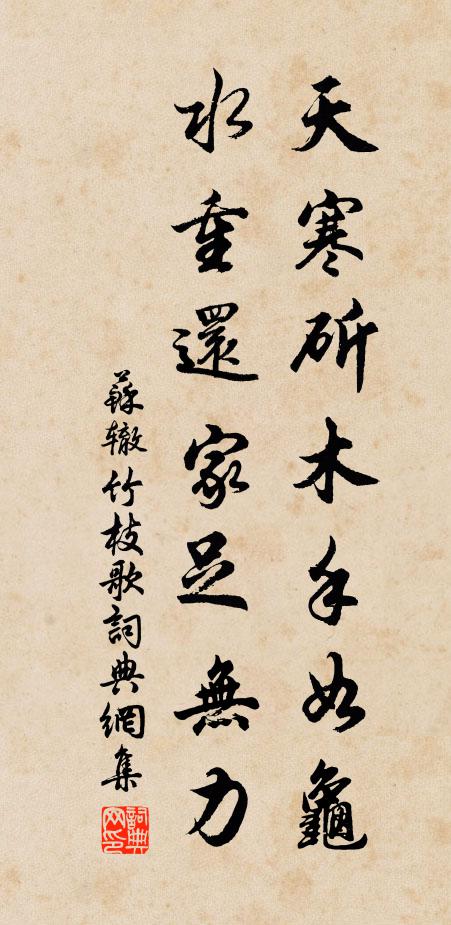 天寒斫木手如龜
水重還家足無力
蘇辙竹枝歌詞典網集
詞典网印